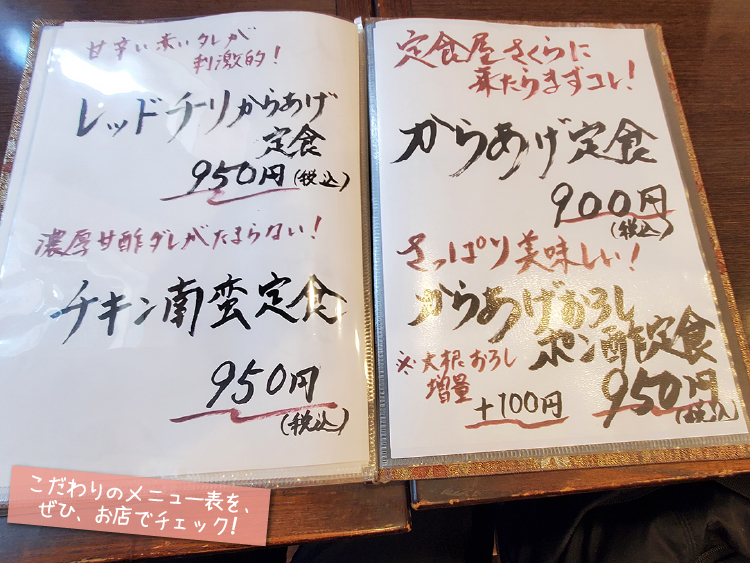 甘辛い赤いタレが
刺激的!
レッドチーリからあげ
定食
950円(税込)
濃厚甘酢ダレがたまらない!
チキン南蛮定食
950円
(税込)
定食屋さくらに
来たらまずコレ!
からあげ定食
900円
(税込)
さっぱり美味しい!
からあげおろし
ポン酢定食
※大根おろし
増量
+100円
950円
(税込)
こだわりのメニュー表を、
ぜひ、お店でチェック!